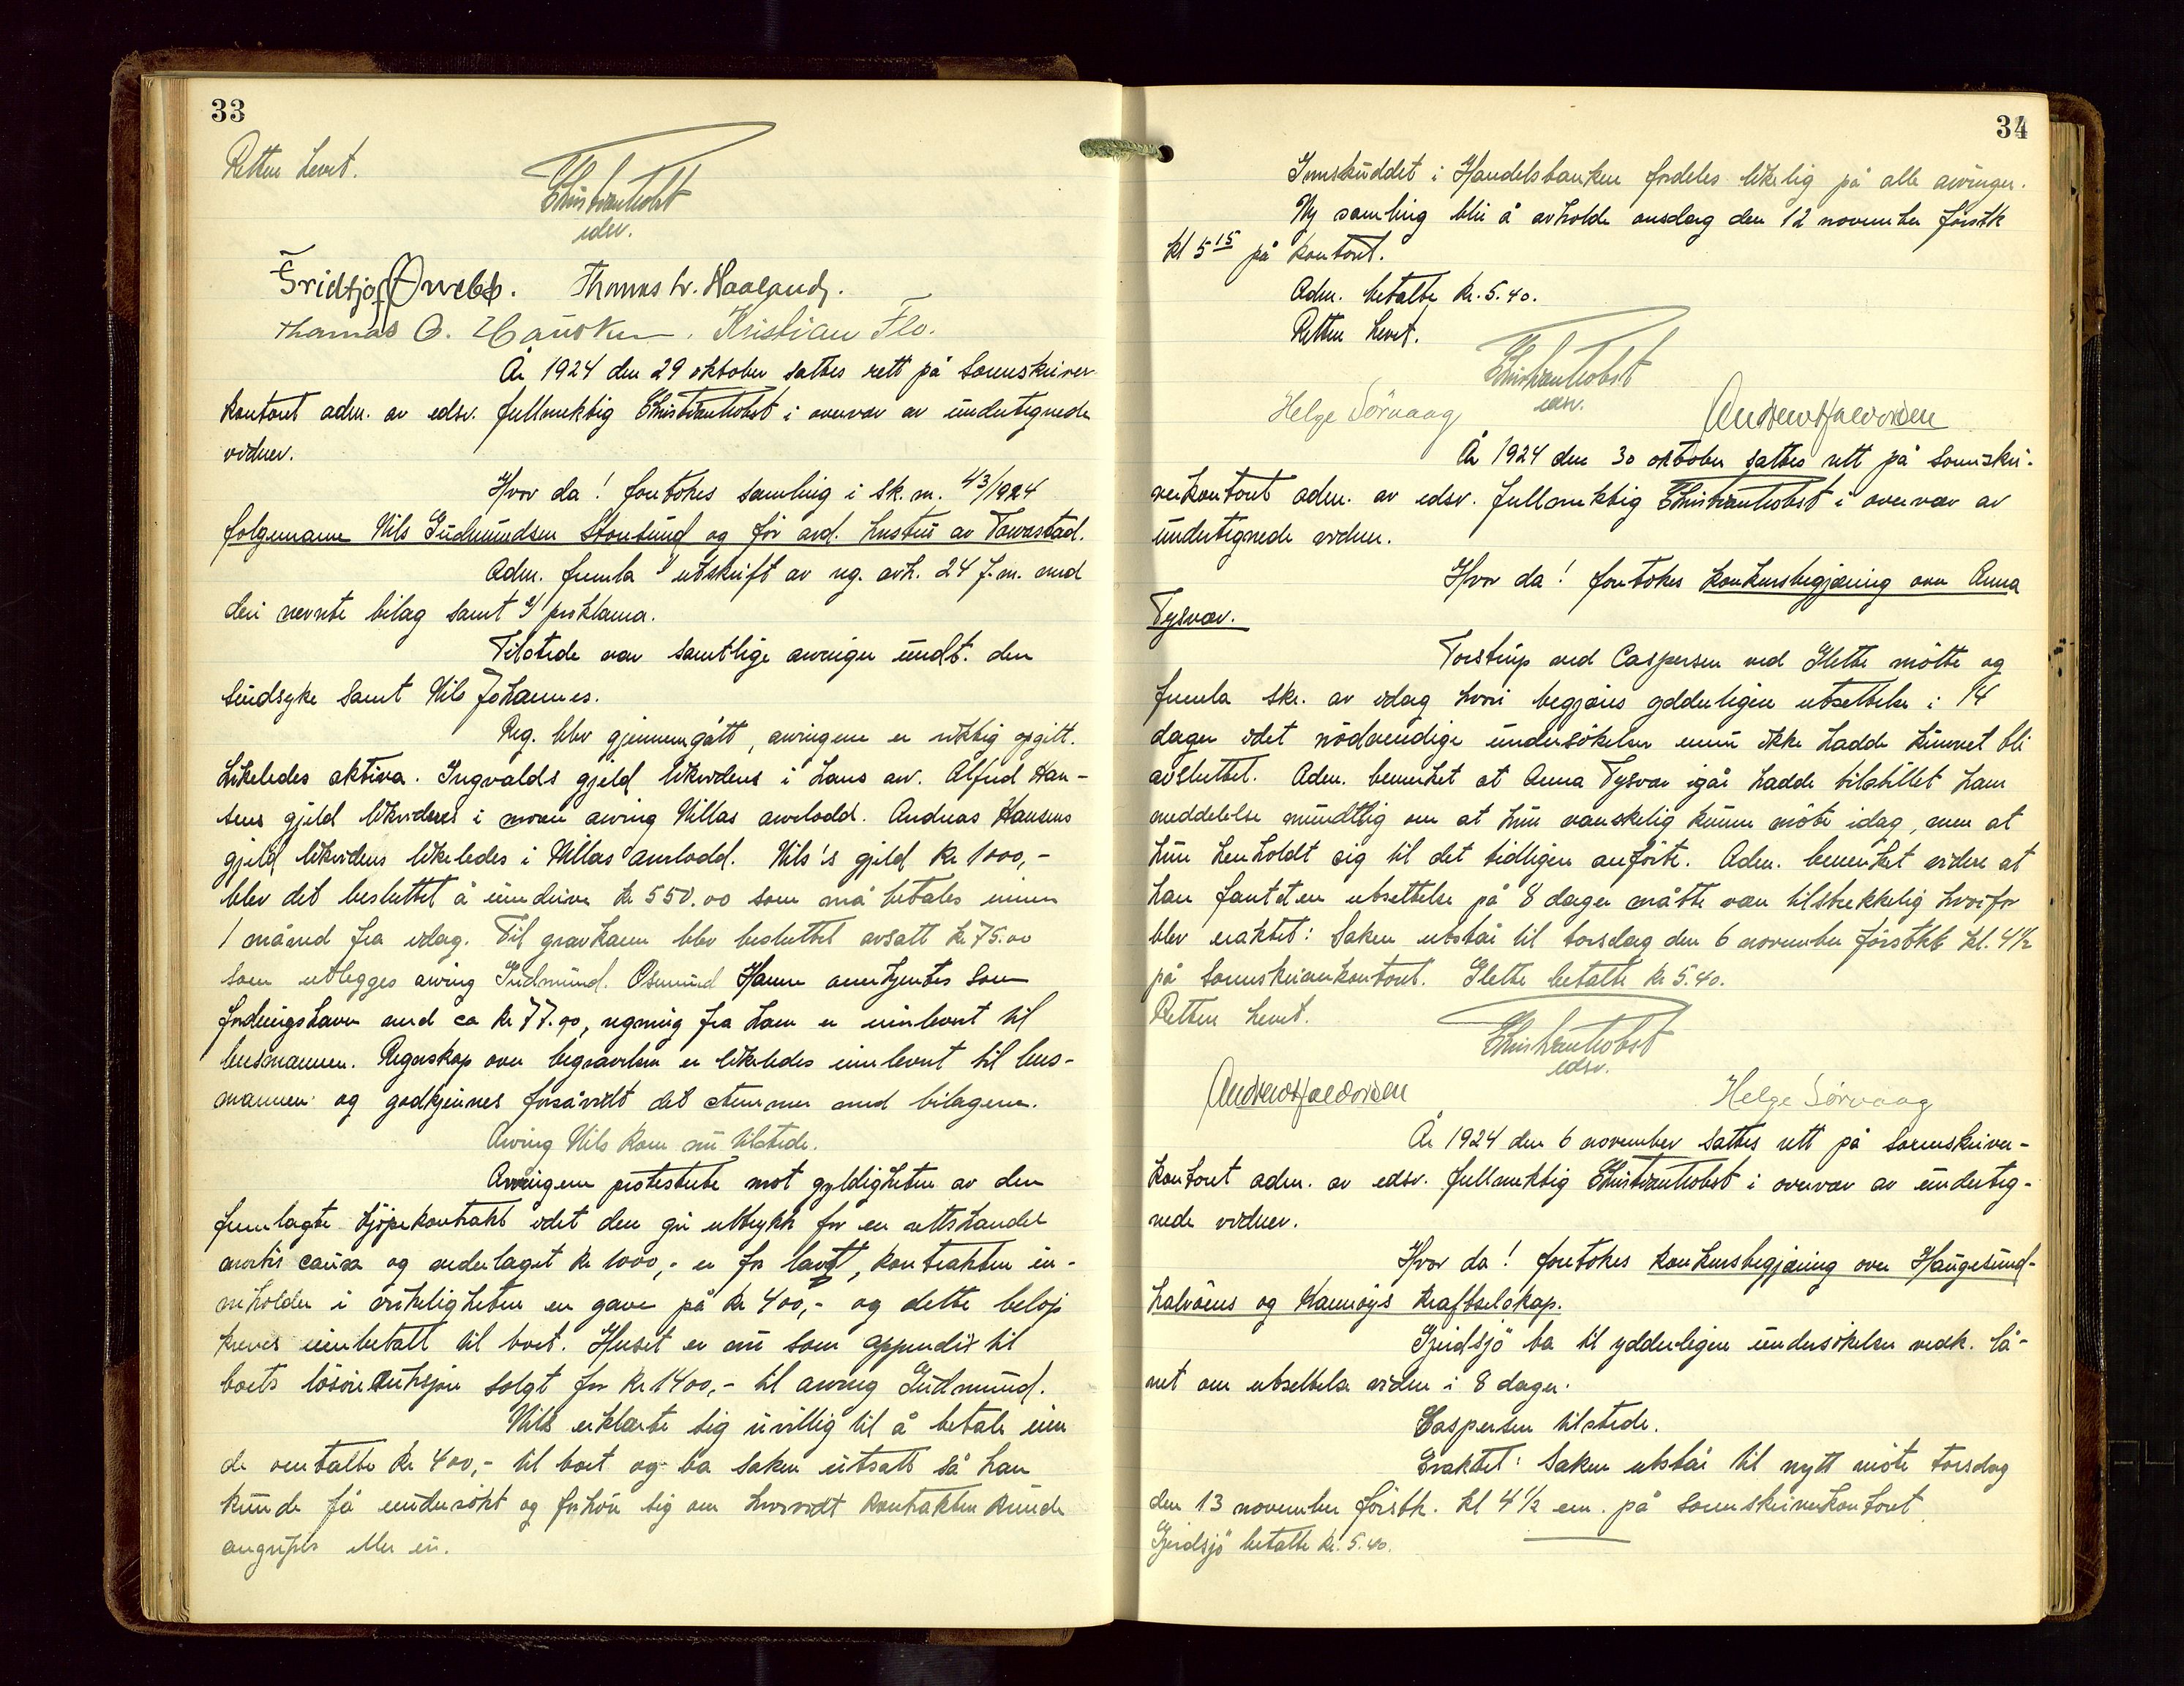 33
Retten hevet.
Christian Holst
edsv.
Fridtjof Qwebb. Thomas W. Haaland.
Thomas O. Hausken. Kristian Flo.
År 1924 den 29 oktober sattes rett på sorenskriver
kontoret adm. av edsv. fullmektig Christian Holst i overvær av undertegnede
vidner.
Hvor da! foretokes samling i sk. m. 43/1924
følgemann Nils Gudmundsen Storesund og før avd. hustru av Torvastad.
Adm. fremla 1/ utskrift av reg. avh. 24 f.m. med
deri nevnte bilag samt 2/ proklama.
Tilstede var samtlige arvinger undt. den
sindsyke samt Nils Johannes.
Reg. blev gjennemgått, arvingene er riktig opgitt.
Likeledes aktiva. Ingvalds gjeld likvideres i hans arv. Alfred Han-
sens gjeld likvideres i moren arving Millas arvelodd. Andreas Hansens
gjeld likvideres likeledes i Millas arvelodd. Nils's gjeld kr 1000,-
blev det besluttet å inndrive kr 550.00 som må betales innen
1 måned fra idag. Til gravkann blev besluttet avsatt kr 75.00
som utlegges arving Gudmund. Osmund Hanne anerkjentes som
fordringshaver med ca kr 77.90, regning fra ham er innlevert til
lensmannen. Regnskap over begravelsen er likeledes innlevert til lens-
mannen og godkjennes forsåvidt det stemmer med bilagene.
Arving Nils kom nu tilstede.
Arvingene protesterte mot gyldigheten av den
fremlagte kjøpekontrakt idet den gir uttrykk for en rettshandel
mortis causa og vederlaget kr 1000,- er for lavt, kontrakten in-
neholder i virkeligheten en gave på kr 400,- og dette beløp
kreves innbetalt til boet. Huset er nu som appendix til
boets løsøreauksjon solgt for kr 1400,- til arving Gudmund.
Nils erklærte sig uvillig til å betale inn
de omtalte kr 400,- til boet og ba saken utsatt så han
kunde få undersøkt og forhøre sig om hvorvidt kontrakten kunde
angripes eller ei.
34
Innskuddet i Handelsbanken fordeles likelig på alle arvinger.
Ny samling blir å avholde onsdag den 12 november førstk
kl 5 15 på kontoret.
Adm. betalte kr. 5.40.
Retten hevet.
Christian Holst
edsv.
Helge Sørvaag Andrew Halvorsen
År 1924 den 30 oktober sattes rett på sorenskri-
verkontoret adm. av edsv. fullmektig Christian Holst i overvær av
undertegnede vidner.
Hvor da! foretokes konkursbegjæring over Anna
Tysvær.
Torstrup ved Caspersen ved Glette møtte og
fremla skr. av idag hvori begjæres ydderligere utsettelse i 14
dager idet nødvendige undersøkelser ennu ikke hadde kunnet bli
avsluttet. Adm. bemerket at Anna Tysvær igår hadde tilstillet ham
meddelelse mundtlig om at hun vanskelig kunne møte idag, men at
hun henholdt sig til det tidligere anførte. Adm. bemerket videre at
han fant at en utsettelse på 8 dager måtte være tilstrekkelig hvorfor
blev eraktet: Saken utstår til torsdag den 6 november førstk kl. 4½
på sorenskriverkontoret. Glette betalte kr 5.40.
Retten hevet.
Christian Holst
edsv.
Andrew Halvorsen Helge Sørvaag
År 1924 den 6 november sattes rett på sorenskriver-
kontoret adm. av edsv. fullmektig Christian Holst i overvær av underteg-
nede vidner.
Hvor da! foretokes konkursbegjæring over Haugesund-
halvøens og Karmøys kraftselskap.
Gjerdsjø ba til ydderligere undersøkelser vedk. lå-
net om utsettelse videre i 8 dager.
Caspersen tilstede.
Eraktet: Saken utstår til nytt møte torsdag
den 13 november førstk. kl 4½ em. på sorenskriverkontoret
Gjerdsjø betalte kr. 5.40.